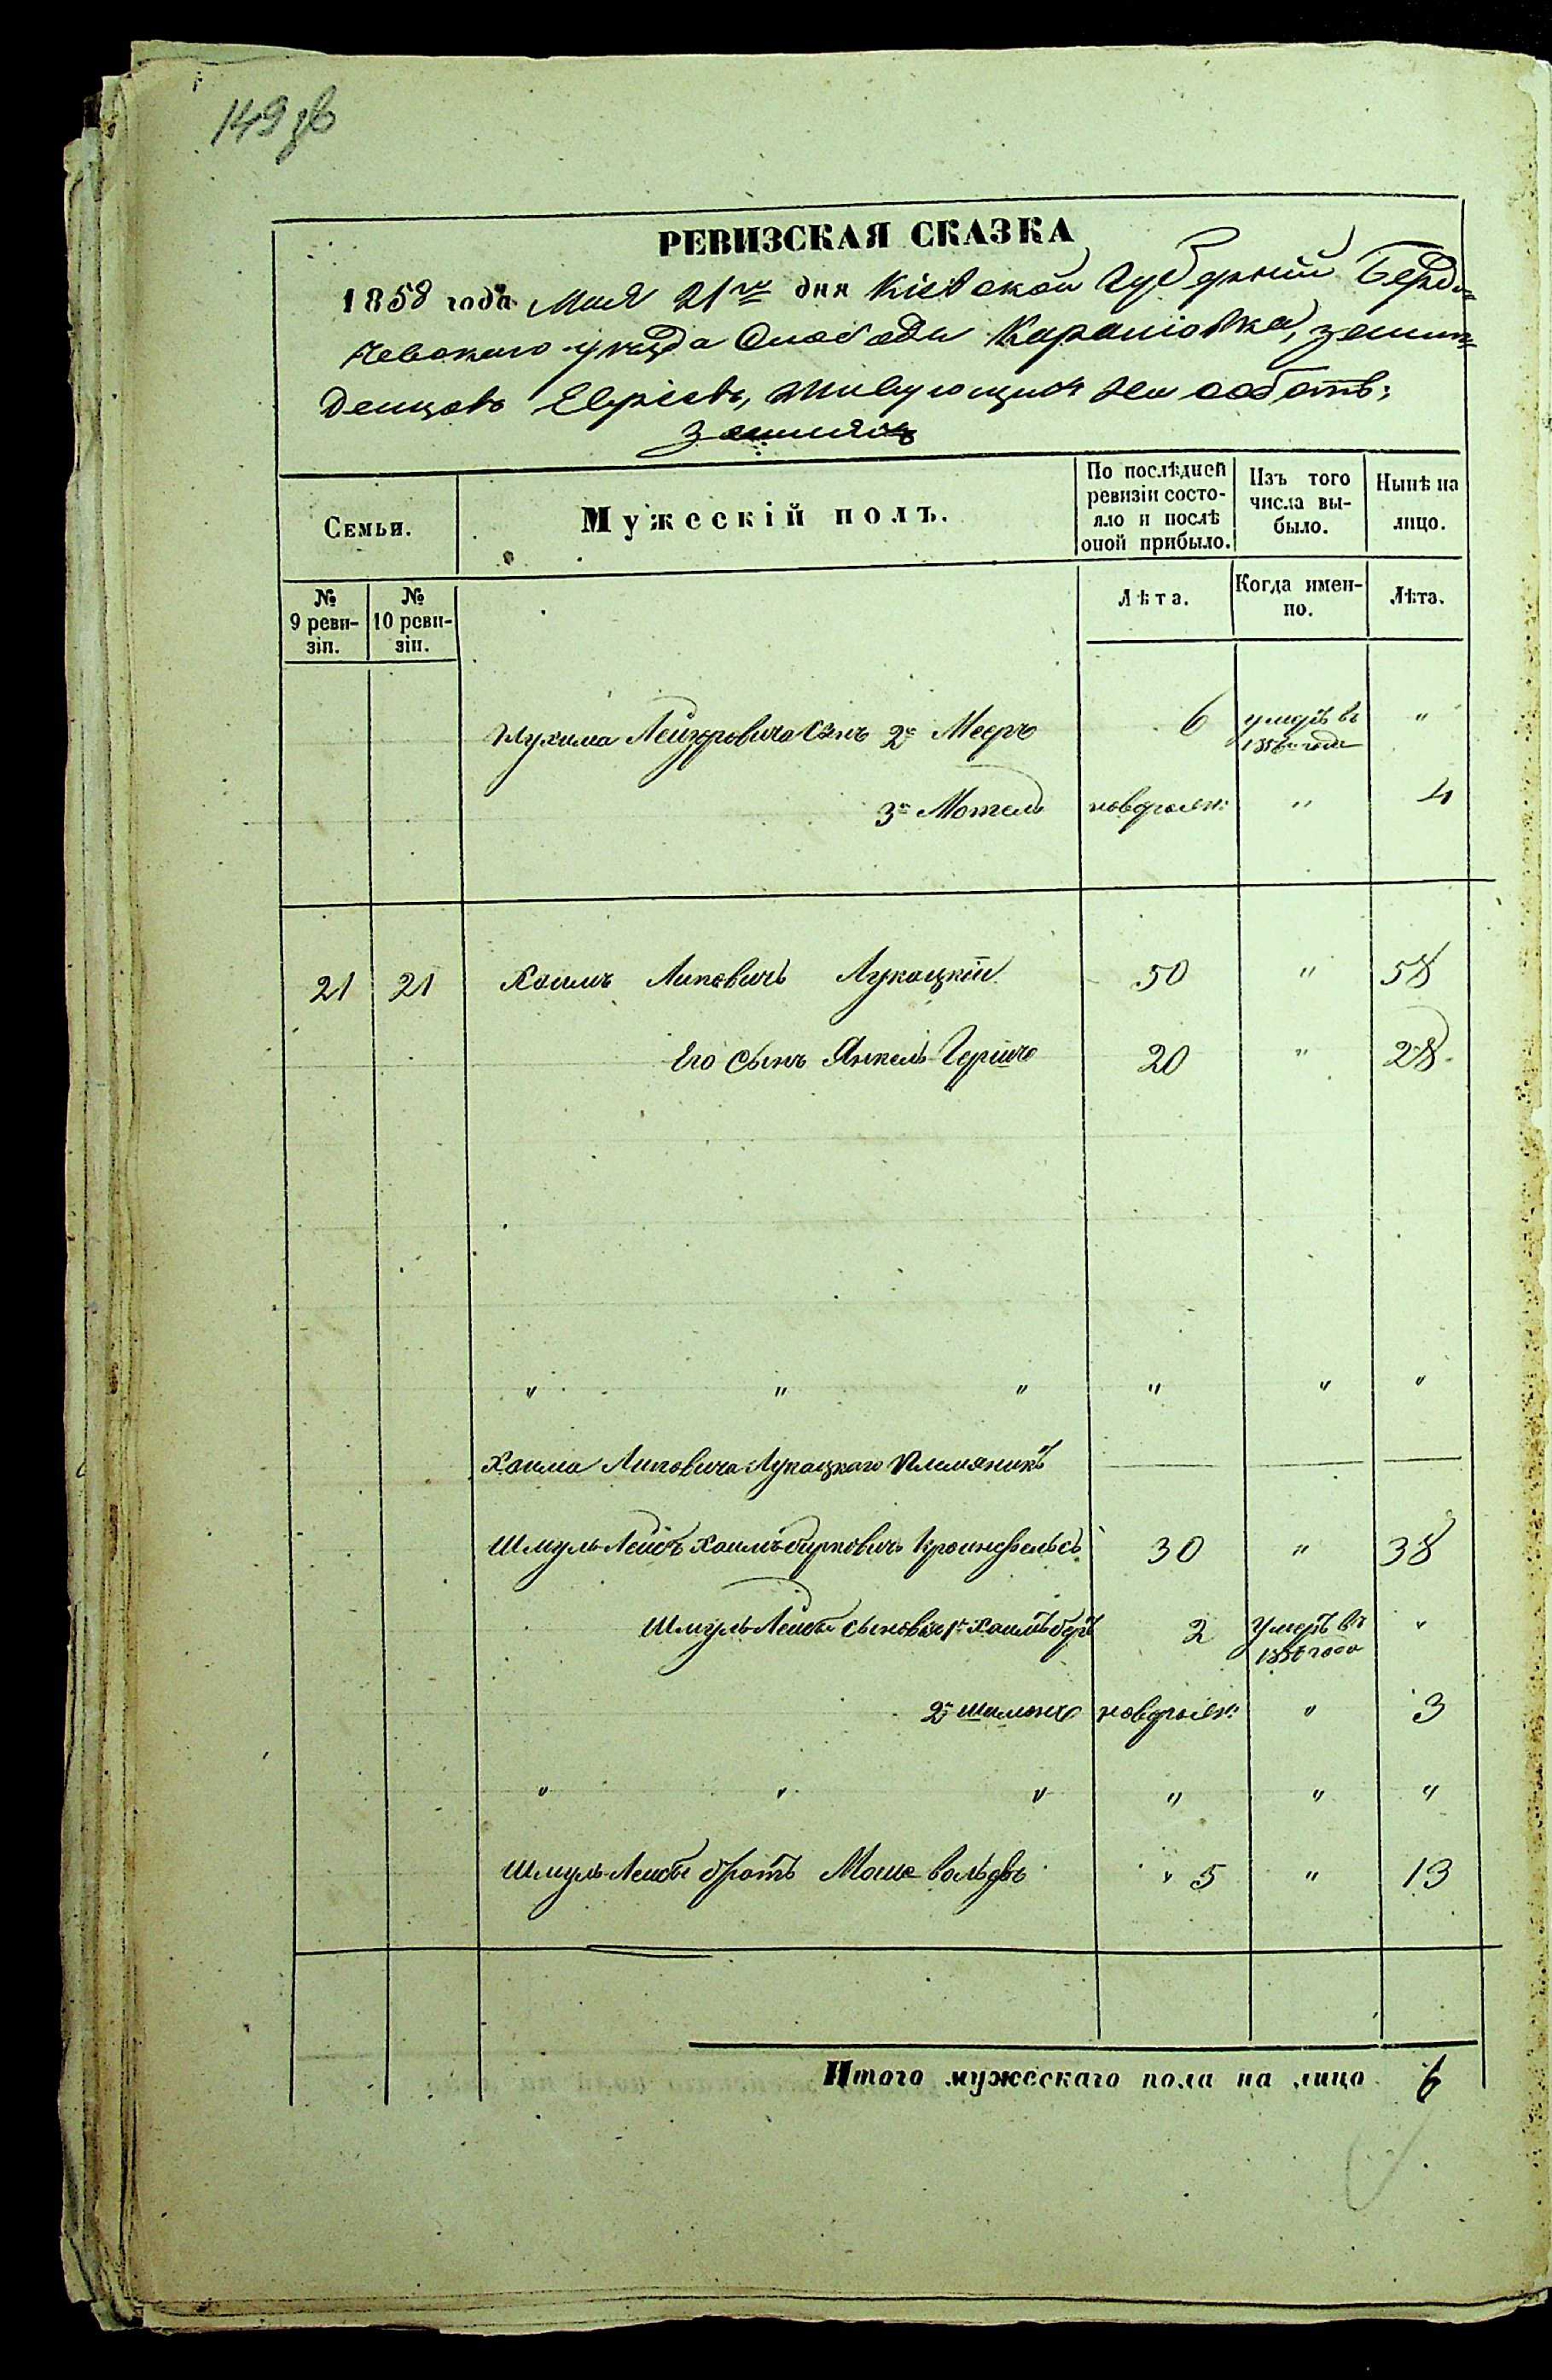 149 зв
РЕВИЗСКАЯ СКАЗКА
1858 года Мая 21го дня Кіевской Губерніи Берди-
чевскаго уезда Слободы земли-
дельцовъ Евреевъ, жительствующихъ на собств:
земляхъ
Семьи.
Мужескій полъ.
По послѣдней ревизіи состо-яло и послѣ оной прибыло.
Изъ того числа вы-было.
Нынѣ на лицо.
№ 9 реви-зіи.
№ 10 реви-зіи.
Лѣта.
Когда имен-но.
Лѣта.
Нухима Лейзоровича Сынъ 2й Мееръ 6 умеръ въ 1856м годе "
3й Мотель новорожн: " 4
21 21 Хаимъ Липовичъ Лукацкій 50 " 58
Его сынъ Янкель Гершко 20 " 28
" " " " " "
Хаима Липовича Лукацкаго Племяникъ
Шмуль Лейбъ Хаимъ Берковичъ 30 " 38
Шмуль Лейбы сыновья 1й Хаимъ Беръ 2 Умеръ въ 1856 годе "
2й Шимонъ новорожн: " 3
" " " " " "
Шмуль Лейбы братъ Моше Вольфъ " 5 " 13
Итого мужескаго пола на лицо 6